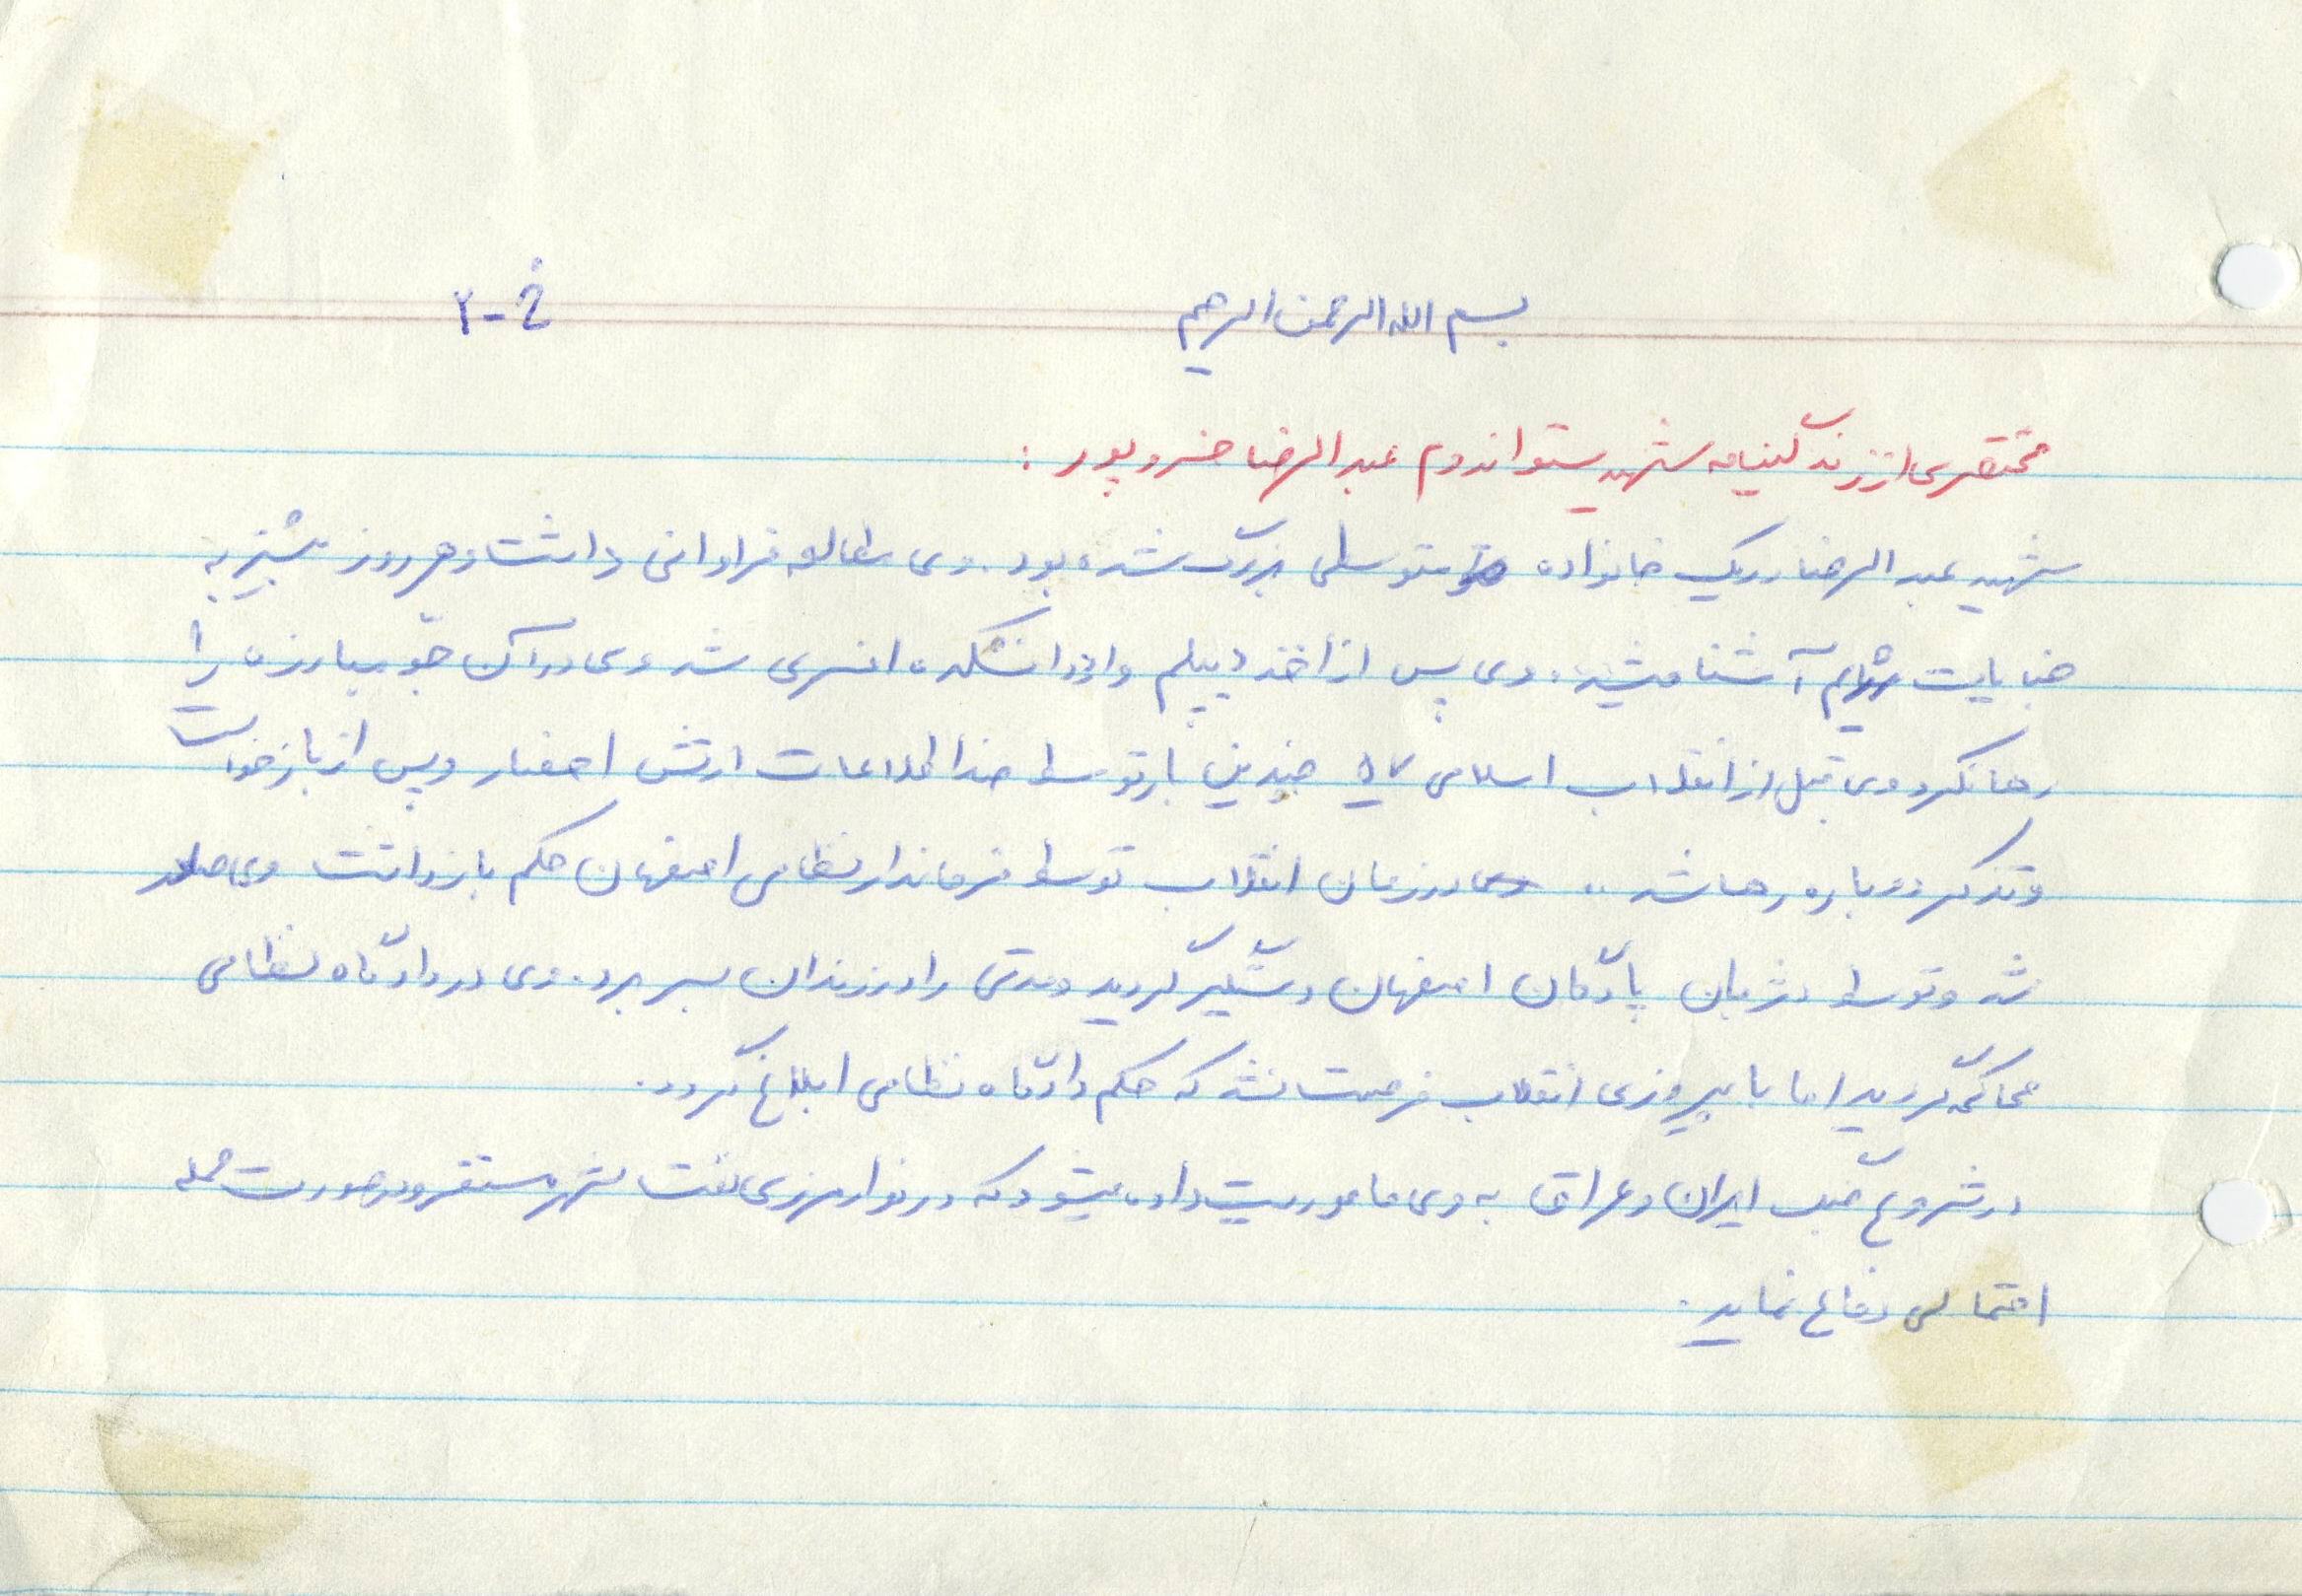 بسم الله الرحمن الرحیم
خ-۲
مختصری از زندگینامه شهید ستواندوم عبدالرضا خسروپور :
شهید عبدالرضا در یک خانواده متوسطی بزرگ شده بود. وی مطالعه فراوانی داشت و هر روز بیشتر به
جنایات رژیم آشنا میشد. وی پس از اخذ دیپلم وارد دانشکده افسری شد وی در آن جو مبارزه را
رها نکرد وی قبل از انقلاب اسلامی ۵۷ چندین بار توسط ضد اطلاعات ارتش احضار و پس از بازخواست
و تذکر دوباره رها شد .. وی در زمان انقلاب توسط فرماندار نظامی اصفهان حکم بازداشت وی صادر
شد و توسط دژبان پادگان اصفهان دستگیر گردید و مدتی را در زندان بسر برد. وی در دادگاه نظامی
محاکمه گردید اما با پیروزی انقلاب فرصت نشد که حکم دادگاه نظامی ابلاغ گردد.
در شروع جنگ ایران و عراق به وی ماموریت داده میشود که در نوار مرزی نفت شهر مستقر و در صورت حمله
احتمالی دفاع نماید.